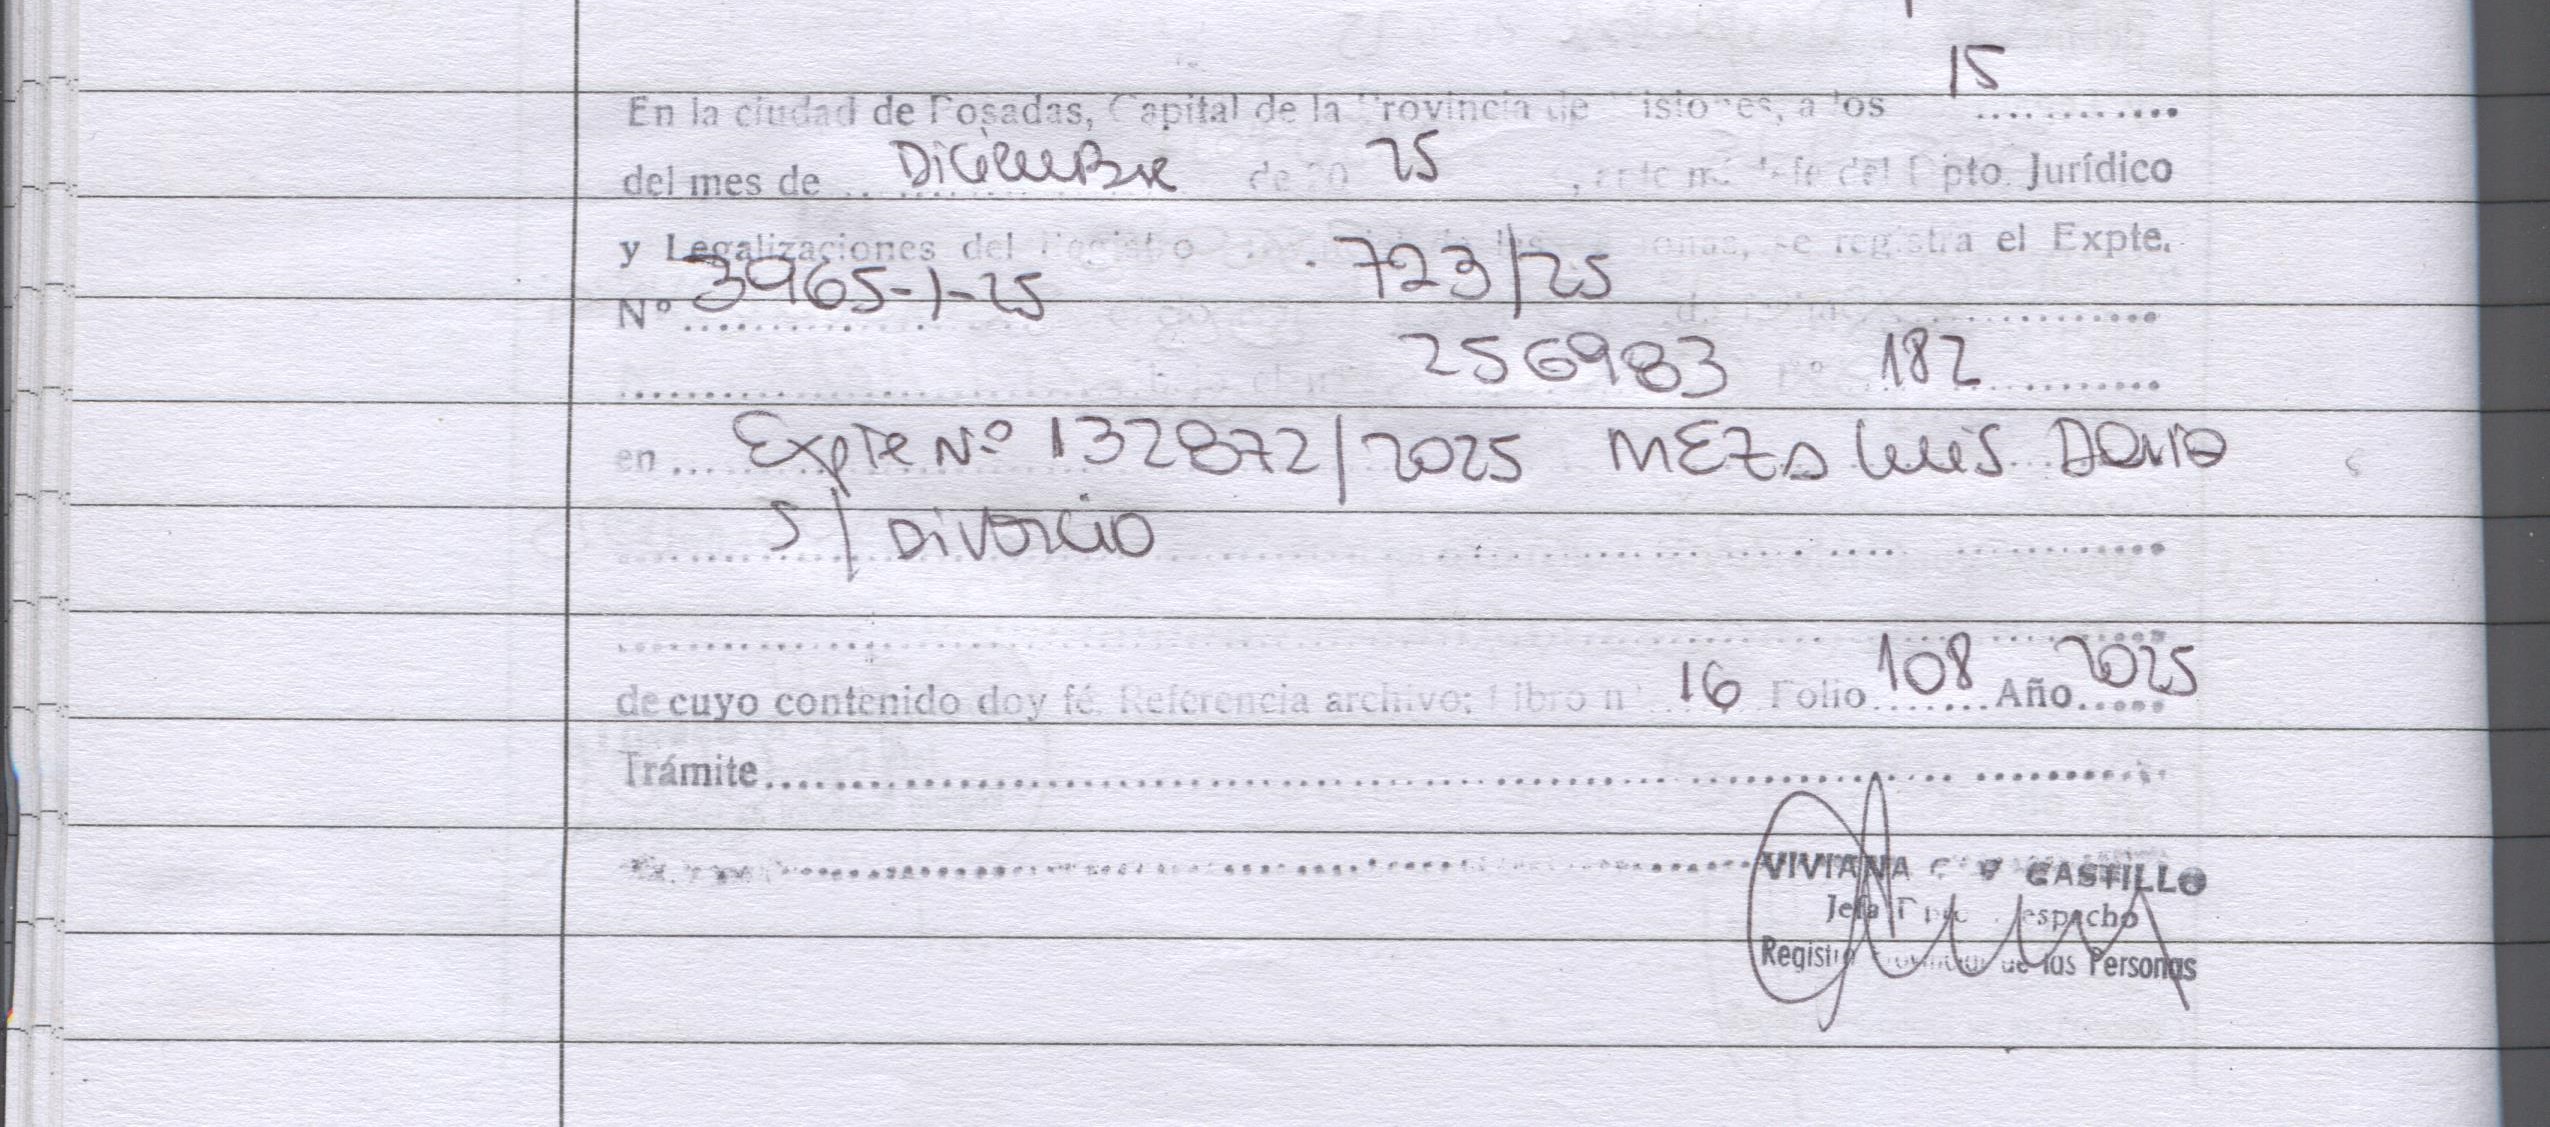 15
En la ciudad de Posadas, Capital de la Provincia de Misiones, a los ............
del mes de Diciembre de 20 25, ante mí Jefe del Dpto. Jurídico
y Legalizaciones del Registro 723/25 se registra el Expte.
Nº 3965-1-25
256983 182
en Expte Nº 132872/2025 MEZA Luis DAVID
S/ Divorcio
de cuyo contenido doy fé. Referencia archivo: Libro nº 16 Folio 108 Año 2025
Trámite
VIVIANA CASTILLO
Jefa Dpto. Despacho
Registro Provincial de las Personas